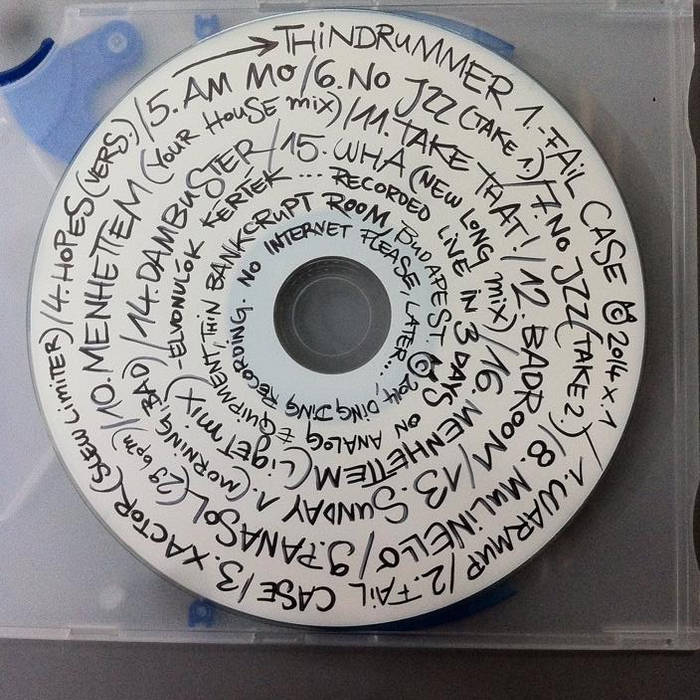 →THiNDRUMMER 1.-FAiL CASE © 2014 x.1
/1.WARMUP/2.FAiL CASE/3.XACTOR(SLEW LiMiTER)/4.HOPES(VERS.)/5.AM MO/6.NO JZZ(TAKE 1.)/7.NO JZZ(TAKE 2.)
/8.MULiNELLO/9.PANASOL(29 bpm)/10.MENHETTEM(YOUR HOUSE mix)/11.TAKE THAT!/12.BADROOM
/13.SUNDAY 1.(MORNiNG, BAD)/14.DAMBUSTER/15.WHA(NEW LONG mix)
/16.MENHETTEM(LiGET MiX)-ELVONULÓK KÉRTÉK .... RECORDED LiVE iN 3 DAYS ON ANALOG
EQUiPMENT, THiN BANKCRUPT ROOM, BUDAPEST. © 2014, DiNG DiNG
RECORDiNG. NO iNTERNET PLEASE, LATER..,